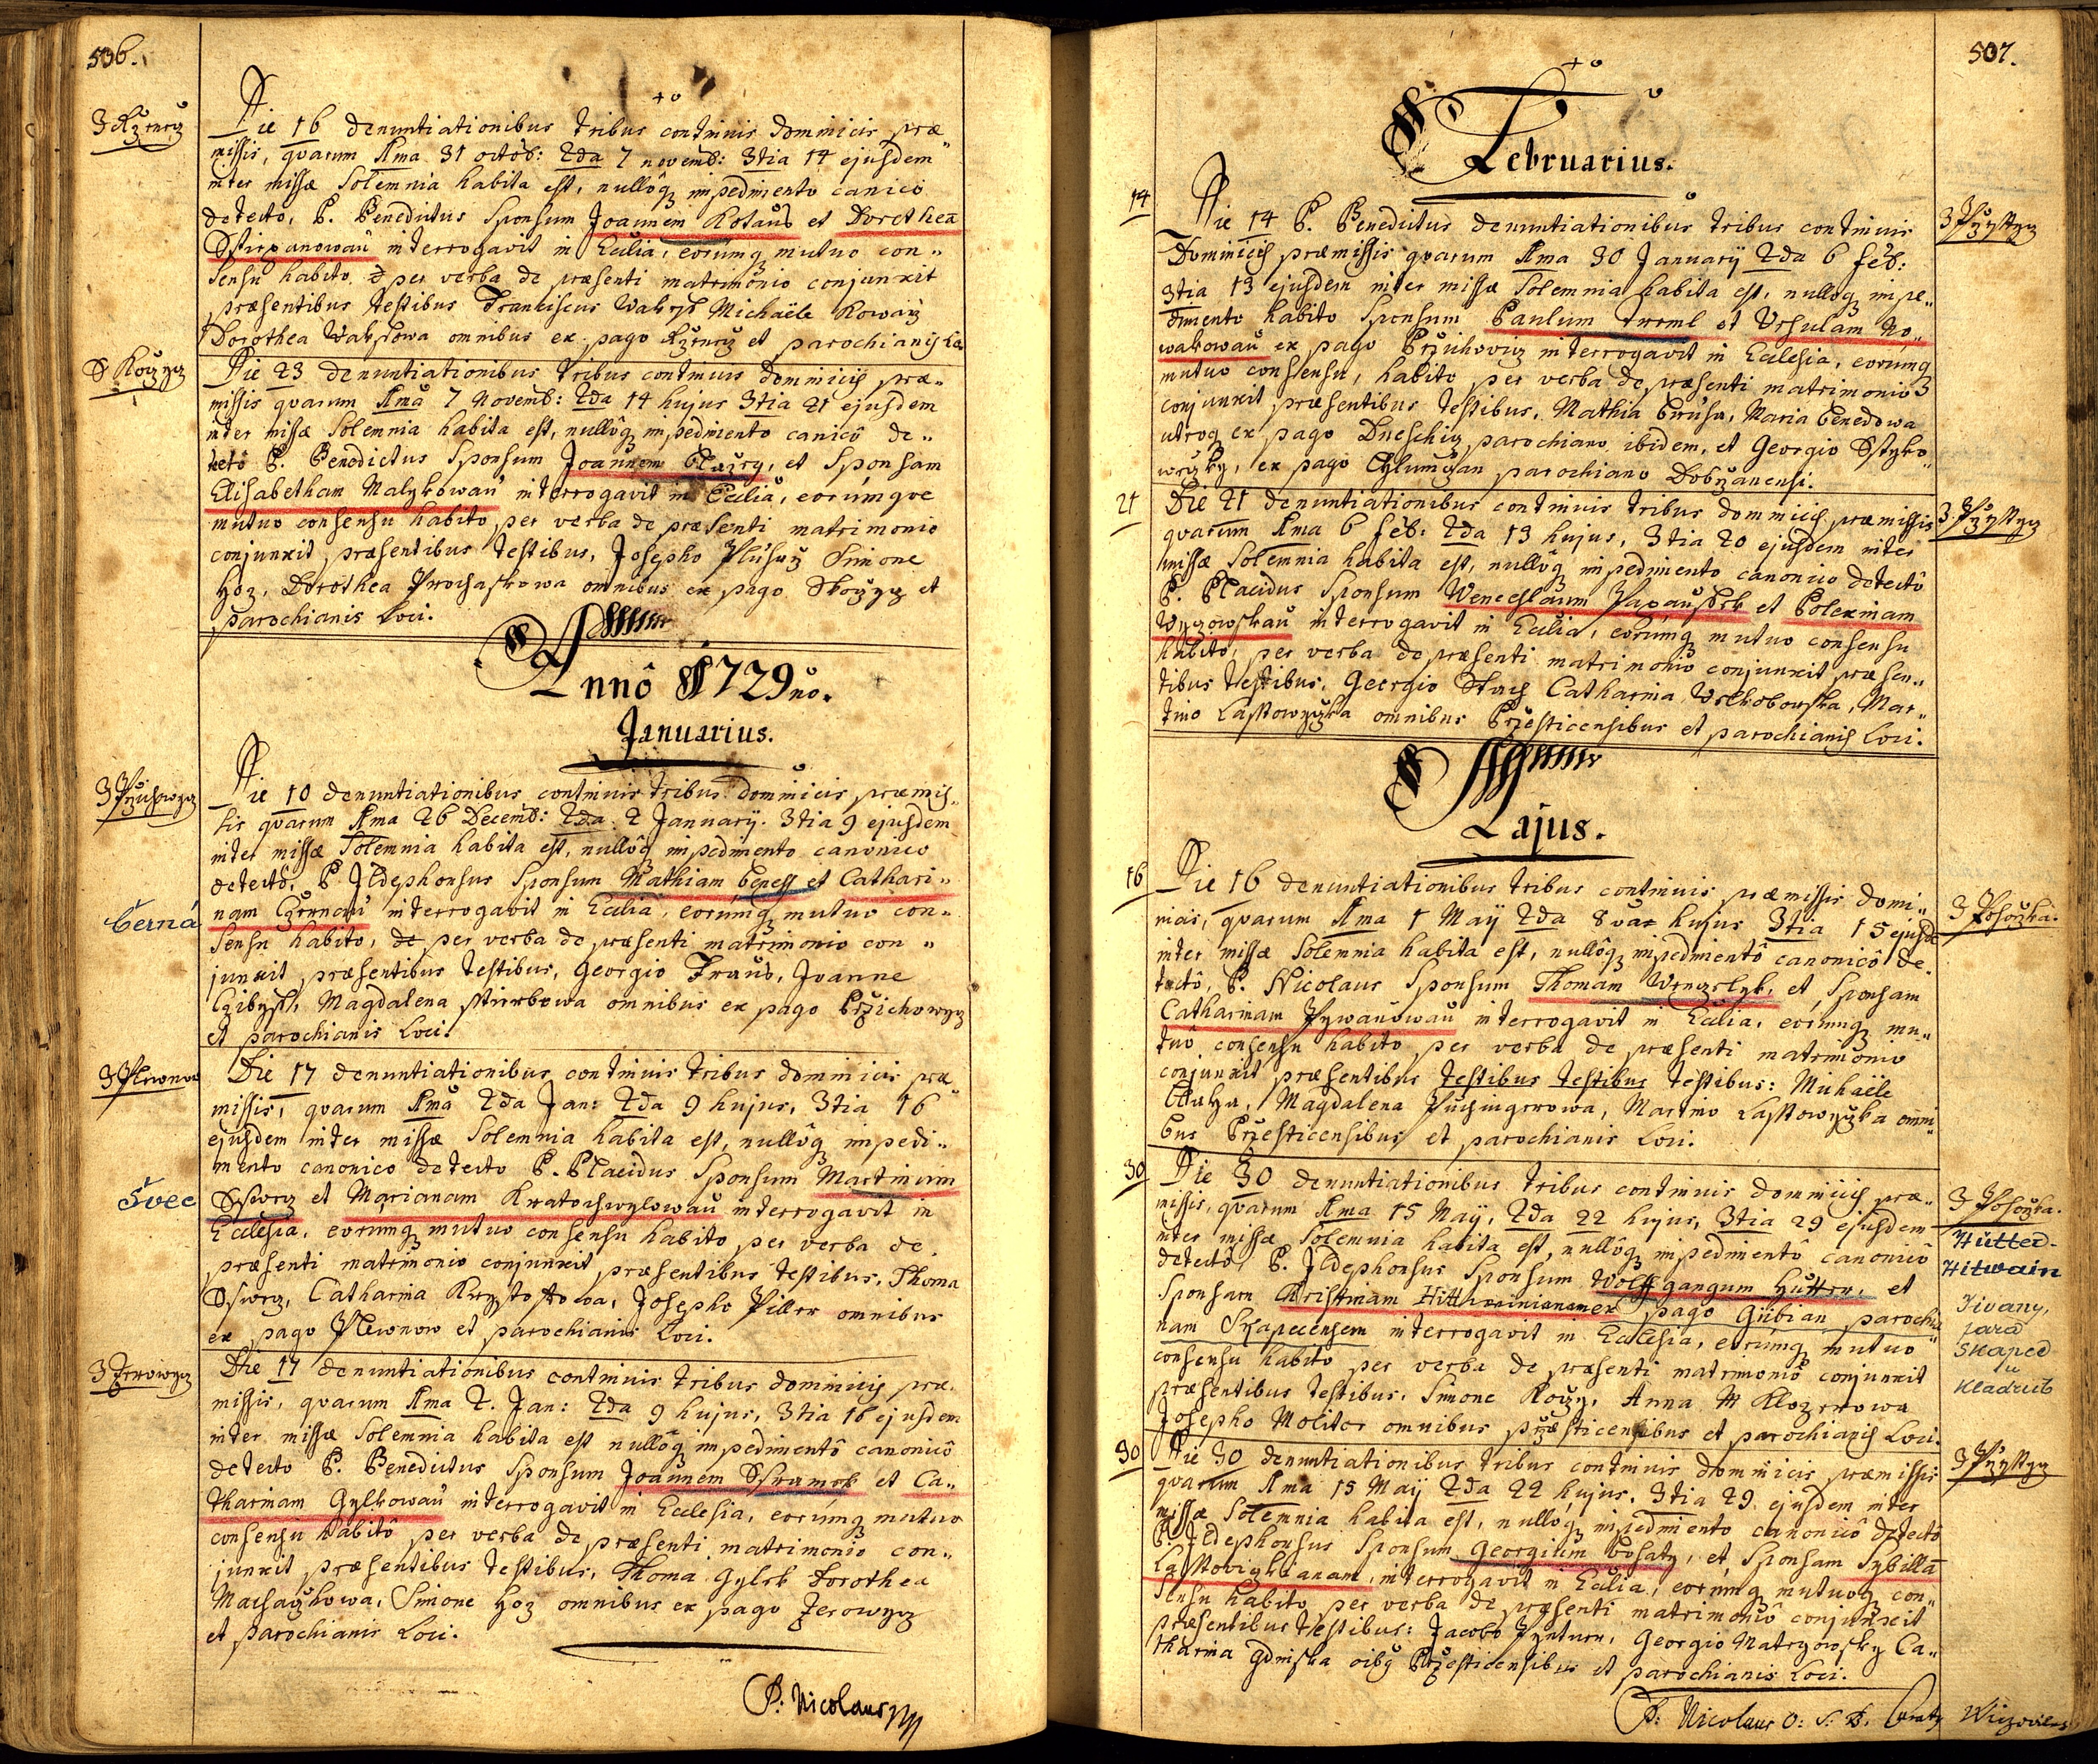 506.
Die 16 denuntiationibus tribus continuis dominicis præ„
missis, qvarum 1ma 31 octob: 2da 7 novemb: 3tia 14 ejusdem
inter missæ solemnia habita est, nullôq impedimento canico
detecto, P. Benedictus Sponsum Joannem Kotaus et Dorothea
interrogavit in Ecclia, eorumq mutuo con„
sensu habito per verba de præsenti matrimonio conjunxit
præsentibus testibus Franciscus Michaële
Dorothea omnibus ex pago et parochianis
Die 23 denuntiationibus tribus continuis dominicis præ„
missis qvarum 1ma 7 Novemb: 2da 14 hujus 3tia 21 ejusdem
inter missæ solemnia habita est, nullôq impedimento canicô de„
tectô P. Benedictus Sponsum Joannem et Sponsam
Elisabetham Malykowau interrogavit in Ecclia, eorumqve
mutuo consensu habito per verba de præsenti matrimonio
conjunxit præsentibus testibus, Josepho Simone
Hoz, Dorothea Prochaskowa omnibus ex pago et
parochianis Loci.
Annô 1729no.
Januarius.
3 Przichowyz
Die 10 denuntiationibus continuis tribus dominicis præmis„
sis qvarum 1ma 26 Decemb: 2da 2 Januarij. 3tia 9 ejusdem
inter missæ solemnia habita est, nullôq impedimento canonico
detectô, P. Ildephonsus Sponsum Mathiam Beness et Cathari„
Černá
nam Czernau interrogavit in Ecclia, eorumq mutuo con„
sensu habito, de per verba de præsenti matrimonio con„
junxit præsentibus testibus, Georgio Traub, Joanne
Magdalena omnibus ex pago Przichowyz
et parochianis Loci.
3 Plewnow
Die 17 denuntiationibus continuis tribus dominicis præ„
missis, qvarum 1ma 2da Jan: 2da 9 hujus, 3tia 16
ejusdem inter missæ solemnia habita est, nullôq impedi„
mento canonico detecto P. Placidus Sponsum Martinum
Švec
Sswez et Marianam Kratochwylowau interrogavit in
Ecclesia, eorumq mutuo consensu habito per verba de
præsenti matrimonio conjunxit præsentibus testibus, Thoma
Sswez, Catharina Josepho Piller omnibus
ex pago Plewnow et parochianis Loci.
3 Zerowyz
Die 17 denuntiationibus continuis tribus dominicis præ„
missis, qvarum 1ma 2. Jan: 2da 9 hujus, 3tia 16 ejusdem
inter missæ solemnia habita est nullôq impedimentô canonicô
detecto P. Benedictus Sponsum Joannem Sskramek et Ca„
tharinam Gylkowau interrogavit in Ecclesia, eorumq mutuo
consensu habitô per verba de præsenti matrimonio con„
junxit præsentibus testibus, Thoma Gylek Dorothea
Machaczkowa, Simone Hoz omnibus ex pago Zerowyz
et parochianis Loci.
P: Nicolaus
507.
Februarius.
14
Die 14 P. Benedictus denuntiationibus tribus continuis
Dominicis præmissis qvarum 1ma 30 Januarij 2da 6 feb:
3tia 13 ejusdem inter missæ solemnia habita est, nullôq impe„
dimento habito Sponsum Paulum et Ursulam No„
wakowau ex pago interrogavit in Ecclesia, eorumq
mutuo consensu, habito per verba de præsenti matrimonio
conjunxit præsentibus testibus, Mathia Maria Benedowa
utroq ex pago parochiano ibidem, et Georgio Styko„
ex pago Chlumczan parochiano Dobrzanensi.
21
Die 21 denuntiationibus continuis tribus dominicis præmissis
qvarum 1ma 6 feb: 2da 13 hujus, 3tia 20 ejusdem inter
missæ solemnia habita est, nullôq impedimento canonico detectô
P. Placidus Sponsum Wenceslaum et Polexinam
interrogavit in Ecclia, eorumq mutuo consensu
habito, per verba de præsenti matrimonio conjunxit præsen„
tibus testibus, Georgio Stach Catharina Mar„
tino Lasstowyczka omnibus Przesticensibus et parochianis Loci.
Majus.
16
Die 16 denuntiationibus tribus continuis præmissis domi„
nicis, qvarum 1ma 1 Maij 2da 8va hujus 3tia 15 ejusde
inter missæ solemnia habita est, nullôq impedimentô canonicô de„
tectô, P. Nicolaus Sponsum Thomam et Sponsam
Catharinam Pywauowau interrogavit in Ecclia, eorumq mu„
tuô consensu habito per verba de præsenti matrimonio
conjunxit præsentibus testibus testibus testibus: Michaële
Magdalena Martino Lasstowyczka omni„
bus Przesticensibus et parochianis Loci.
30
Die 30 denuntiationibus tribus continuis dominicis præ„
missis, qvarum 1ma 15 Maij, 2da 22 hujus, 3tia 29 ejusdem
inter missæ solemnia habita est, nullôq impedimentô canonico
Hütter-
Hitwain
detectô, P. Ildephonsus Sponsum Wolffgangum Hutter, et
Sponsam Christinam ex pago Gübian parochia„
Jivany,
fara
Skapec
u
Kladrub
nam Skapecensem interrogavit in Ecclesia, eorumq mutuo
consensu habito per verba de præsenti matrimoniô conjunxit
præsentibus testibus, Simone Anna
Josepho Molitor omnibus przesticensibus et parochianis Loci.
30
Die 30 denuntiationibus tribus continuis dominicis præmissis
qvarum 1ma 15 Maij 2da 22 hujus, 3tia 29 ejusdem inter
missæ solemnia habita est, nullôq impedimento canonicô detectô
P. Ildephonsus Sponsum Georgium Bohaty, et Sponsam Sybillā
interrogavit in Ecclia, eorumq mutuoq con„
sensu habito per verba de præsenti matrimoniô conjunxit
præsentibus testibus: Jacobo Georgio Ca„
tharina Przesticensibus et parochianis Loci.
P: Nicolaus O: S: B.